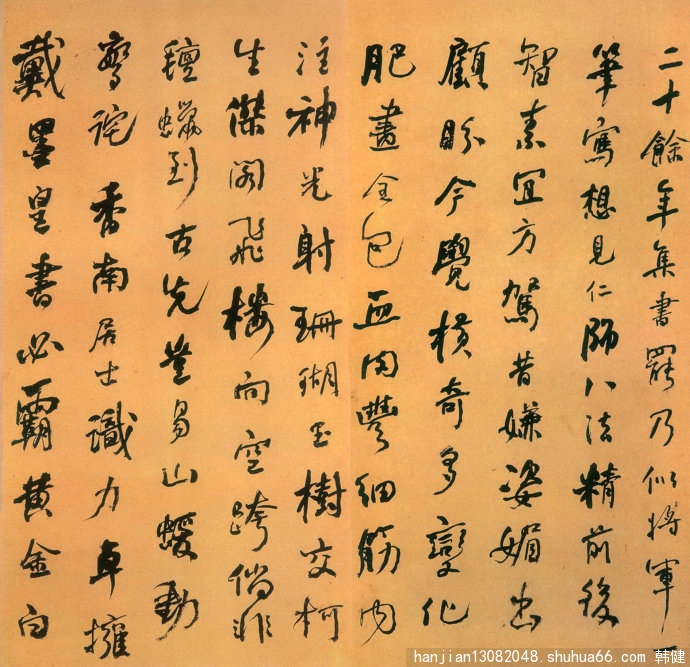 二十餘年集書罷乃似將軍
筆寫想見仁師八法精前後
智素宜方駕昔嫌姿媚出
顧盼今覺橫奇多變化
肥畫全包血肉豐細筋內
注神光射珊瑚玉樹交柯
生傑閣飛樓向空跨倘非
氊蠟到古先豈易山蝯動
詫香南居士識力卓擁
戴墨皇書必霸黃金白
hanjian13082048.shuhua66.com 韩健